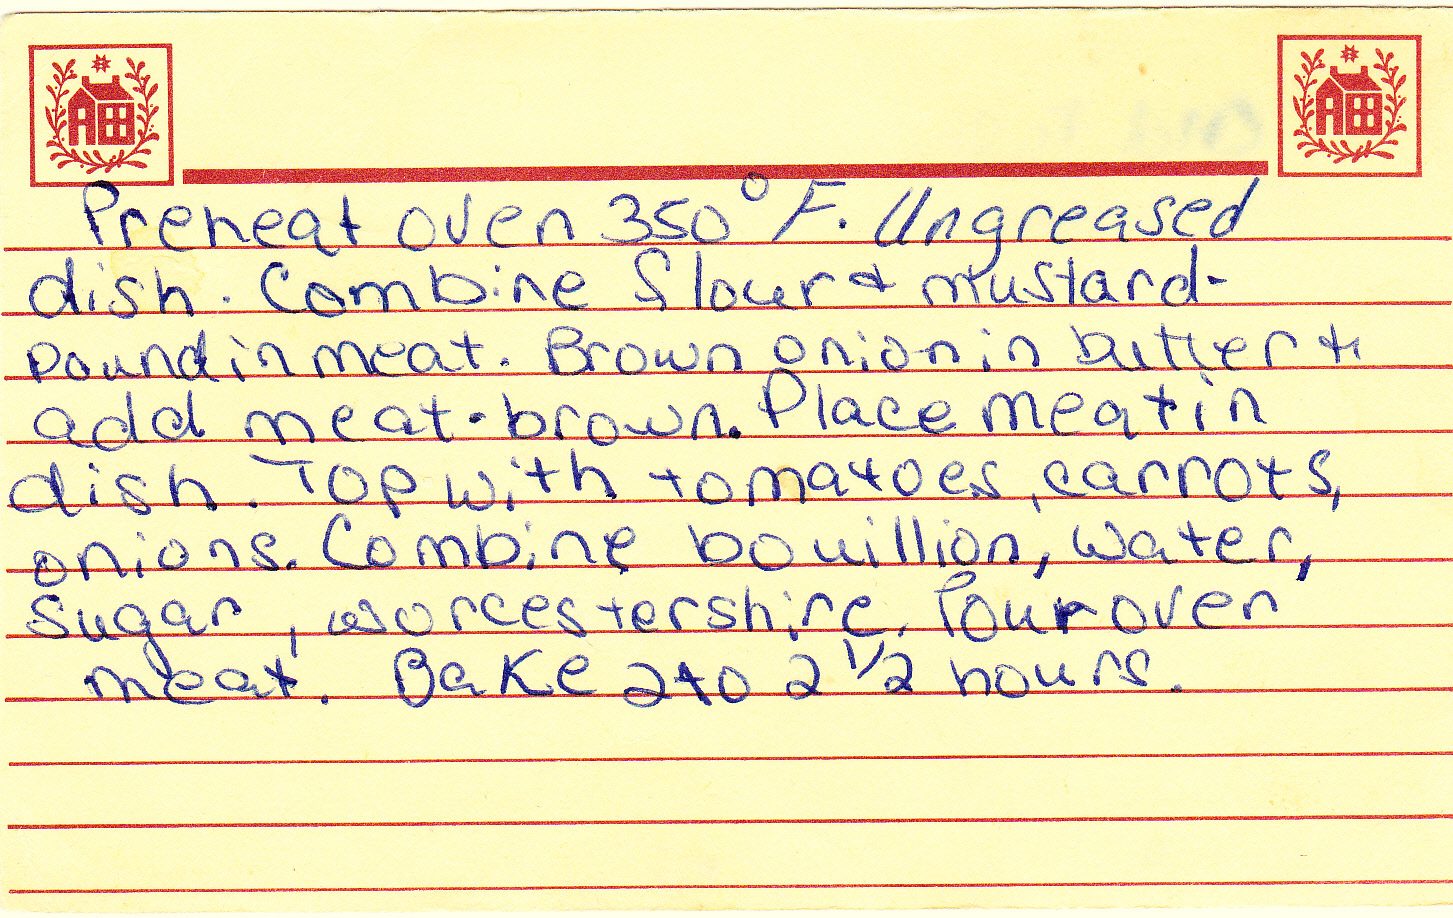 Preheat oven 350° F. Ungreased
dish. Combine flour & mustard-
pound in meat. Brown onion in butter &
add meat - brown. Place meat in
dish. Top with tomatoes, carrots,
onions. Combine bouillion, water,
sugar, worcestershire. Pour over
meat. Bake 2 to 2 1/2 hours.